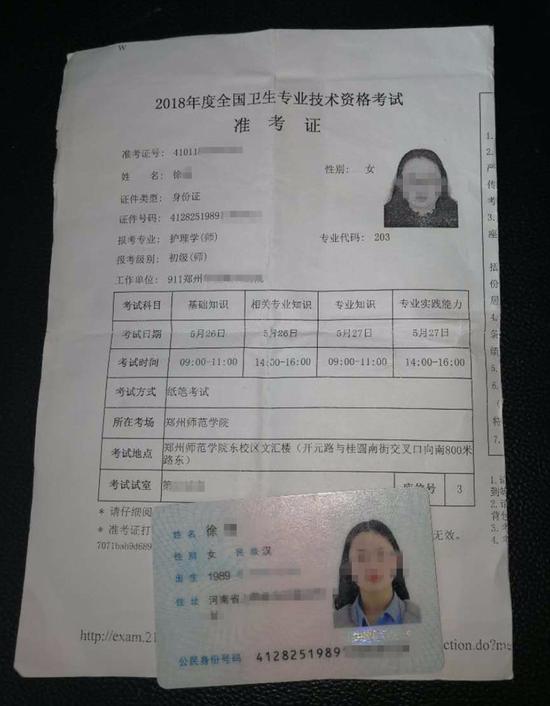 W
2018年度全国卫生专业技术资格考试
准 考 证
准考证号: 41011
姓 名: 徐
性别: 女
证件类型: 身份证
证件号码: 4128251989
报考专业: 护理学(师)
专业代码: 203
报考级别: 初级(师)
工作单位: 911郑州
考试科目 基础知识 相关专业知识 专业知识 专业实践能力
考试日期 5月26日 5月26日 5月27日 5月27日
考试时间 09:00-11:00 14:00-16:00 09:00-11:00 14:00-16:00
考试方式 纸笔考试
所在考场 郑州师范学院
考试地点 郑州师范学院东校区文汇楼（开元路与桂圆南街交叉口向南800米
路东）
考试试室 第
座位号 3
* 请仔细阅
* 准考证打
无效。
http://exam.21
ction.do?me
姓名 徐
性别 女 民族 汉
出生 1989
住址 河南省
公民身份号码 4128251989
1.
2.
严
传
考
3.
座
括
份
居
有
条
5.
6.
（
符
7.